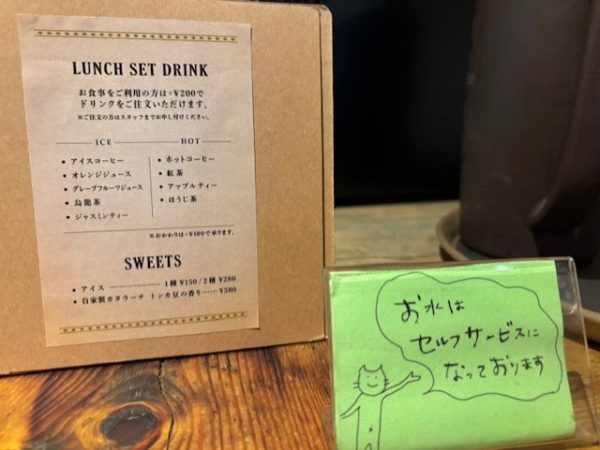 LUNCH SET DRINK
お食事をご利用の方は+¥200で
ドリンクをご注文いただけます。
※ご注文の方はスタッフまでお申し付けください。
ICE
・アイスコーヒー
・オレンジジュース
・グレープフルーツジュース
・烏龍茶
・ジャスミンティー
HOT
・ホットコーヒー
・紅茶
・アップルティー
・ほうじ茶
※おかわりは+¥100で承ります。
SWEETS
・アイス ………………… 1種 ¥150/2種 ¥280
・自家製カタラーナ トンカ豆の香り …… ¥580
お水は
セルフサービスに
なっております